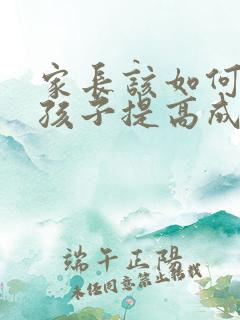 家长该如何
孩子提高成
端午正阳
未经同意禁止转载